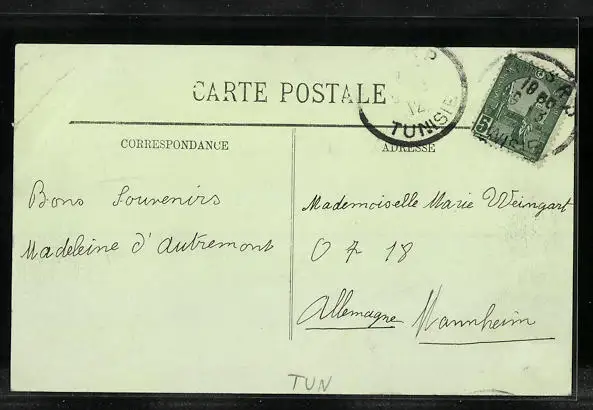 CARTE POSTALE
TUNISIE
5
CORRESPONDANCE
ADRESSE
Bons Souvenirs
Madeleine d'Autremont
Mademoiselle Marie Weingart
O 7 18
Allemagne Mannheim
TUN